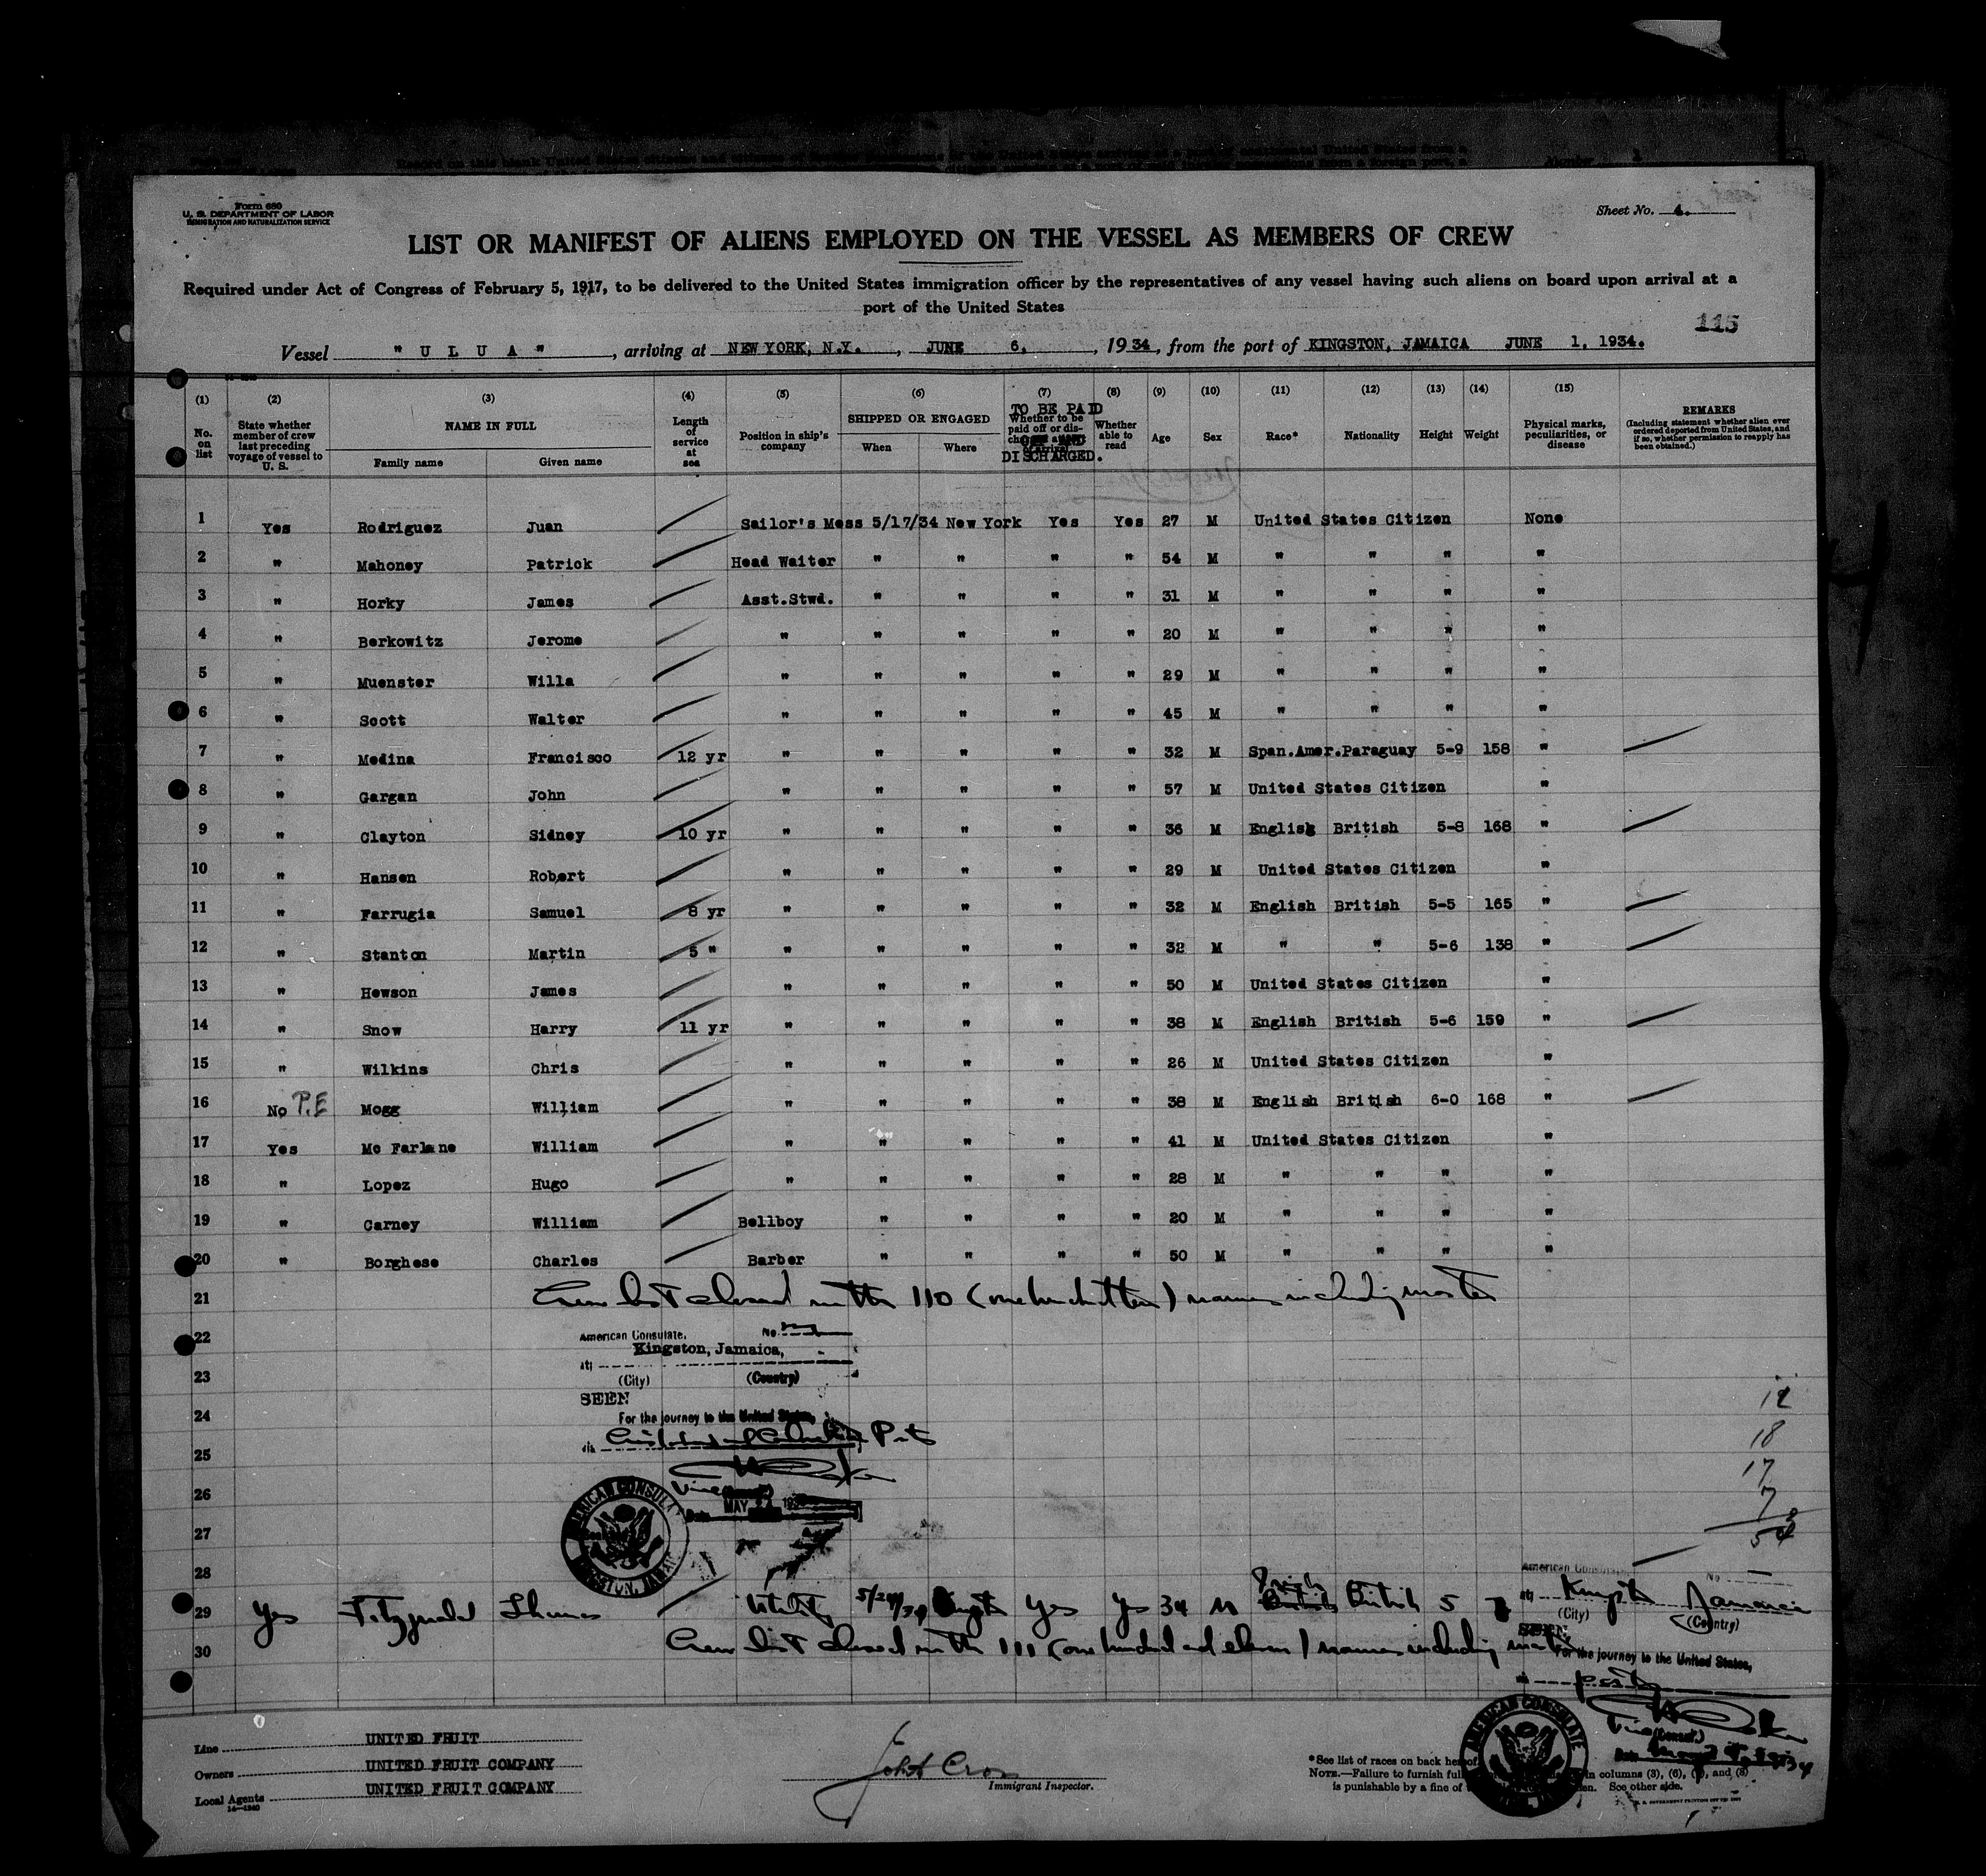 Form 680
U. S. DEPARTMENT OF LABOR
IMMIGRATION AND NATURALIZATION SERVICE
Sheet No. 4.
LIST OR MANIFEST OF ALIENS EMPLOYED ON THE VESSEL AS MEMBERS OF CREW
Required under Act of Congress of February 5, 1917, to be delivered to the United States immigration officer by the representatives of any vessel having such aliens on board upon arrival at a
port of the United States
115
Vessel " U L U A " , arriving at NEW YORK, N.Y. , JUNE 6, , 1934, from the port of KINGSTON, JAMAICA JUNE 1, 1934.
(1) (2) (3) (4) (5) (6) (7) (8) (9) (10) (11) (12) (13) (14) (15)
No. on list State whether member of crew last preceding voyage of vessel to U. S. NAME IN FULL Family name Given name Length of service at sea Position in ship's company SHIPPED OR ENGAGED When Where TO BE PAID DISCHARGED. Whether able to read Age Sex Race* Nationality Height Weight Physical marks, peculiarities, or disease REMARKS (Including statement whether alien ever ordered deported from United States, and if so, whether permission to reapply has been obtained.)
1 Yes Rodriguez Juan Sailor's Mess 5/17/34 New York Yes Yes 27 M United States Citizen None
2 " Mahoney Patrick Head Waiter " " " " 54 M " " " "
3 " Horky James Asst.Stwd. " " " " 31 M " " " "
4 " Berkowitz Jerome " " " " " 20 M " " " "
5 " Muenster Willa " " " " " 29 M " " " "
6 " Scott Walter " " " " " 45 M " " " "
7 " Medina Francisco 12 yr " " " " " 32 M Span.Amer.Paraguay 5-9 158 "
8 " Gargan John " " " " " 57 M United States Citizen "
9 " Clayton Sidney 10 yr " " " " " 36 M English British 5-8 168 "
10 " Hansen Robert " " " " " 29 M United States Citizen "
11 " Farrugia Samuel 8 yr " " " " " 32 M English British 5-5 165 "
12 " Stanton Martin 5 " " " " " " 32 M " " 5-6 138 "
13 " Hewson James " " " " " 50 M United States Citizen "
14 " Snow Harry 11 yr " " " " " 38 M English British 5-6 159 "
15 " Wilkins Chris " " " " " 26 M United States Citizen "
16 No P.E Mogg William " " " " " 38 M English British 6-0 168 "
17 Yes Mc Farlane William " " " " " 41 M United States Citizen "
18 " Lopez Hugo " " " " " 28 M " " " "
19 " Carney William Bellboy " " " " 20 M " " " "
20 " Borghese Charles Barber " " " " 50 M " " " "
21 Crew list closed with 110 (one hundred ten) names including master
22 American Consulate. No.
Kingston, Jamaica,
at
23 (City) (Country)
SEEN
24 For the journey to the United States,
25
26 Date MAY
AMERICAN CONSULATE KINGSTON, JAMAICA
12
18
17
7
54
27
28
29 Yes Fitzgerald Thomas Utility 5/24/34 Kingston Yes Yes 34 M British 5
30 Crew list closed with 111 (one hundred and eleven) names including master
American Consulate No
at Kingston Jamaica
(City) (Country)
SEEN
For the journey to the United States,
AMERICAN CONSULATE
Vice (Consul.)
Date
Line UNITED FRUIT
Owners UNITED FRUIT COMPANY
Local Agents UNITED FRUIT COMPANY
14—1240
John Cron
Immigrant Inspector.
*See list of races on back hereof
NOTE.—Failure to furnish full in columns (3), (6), and (8)
is punishable by a fine of See other side.